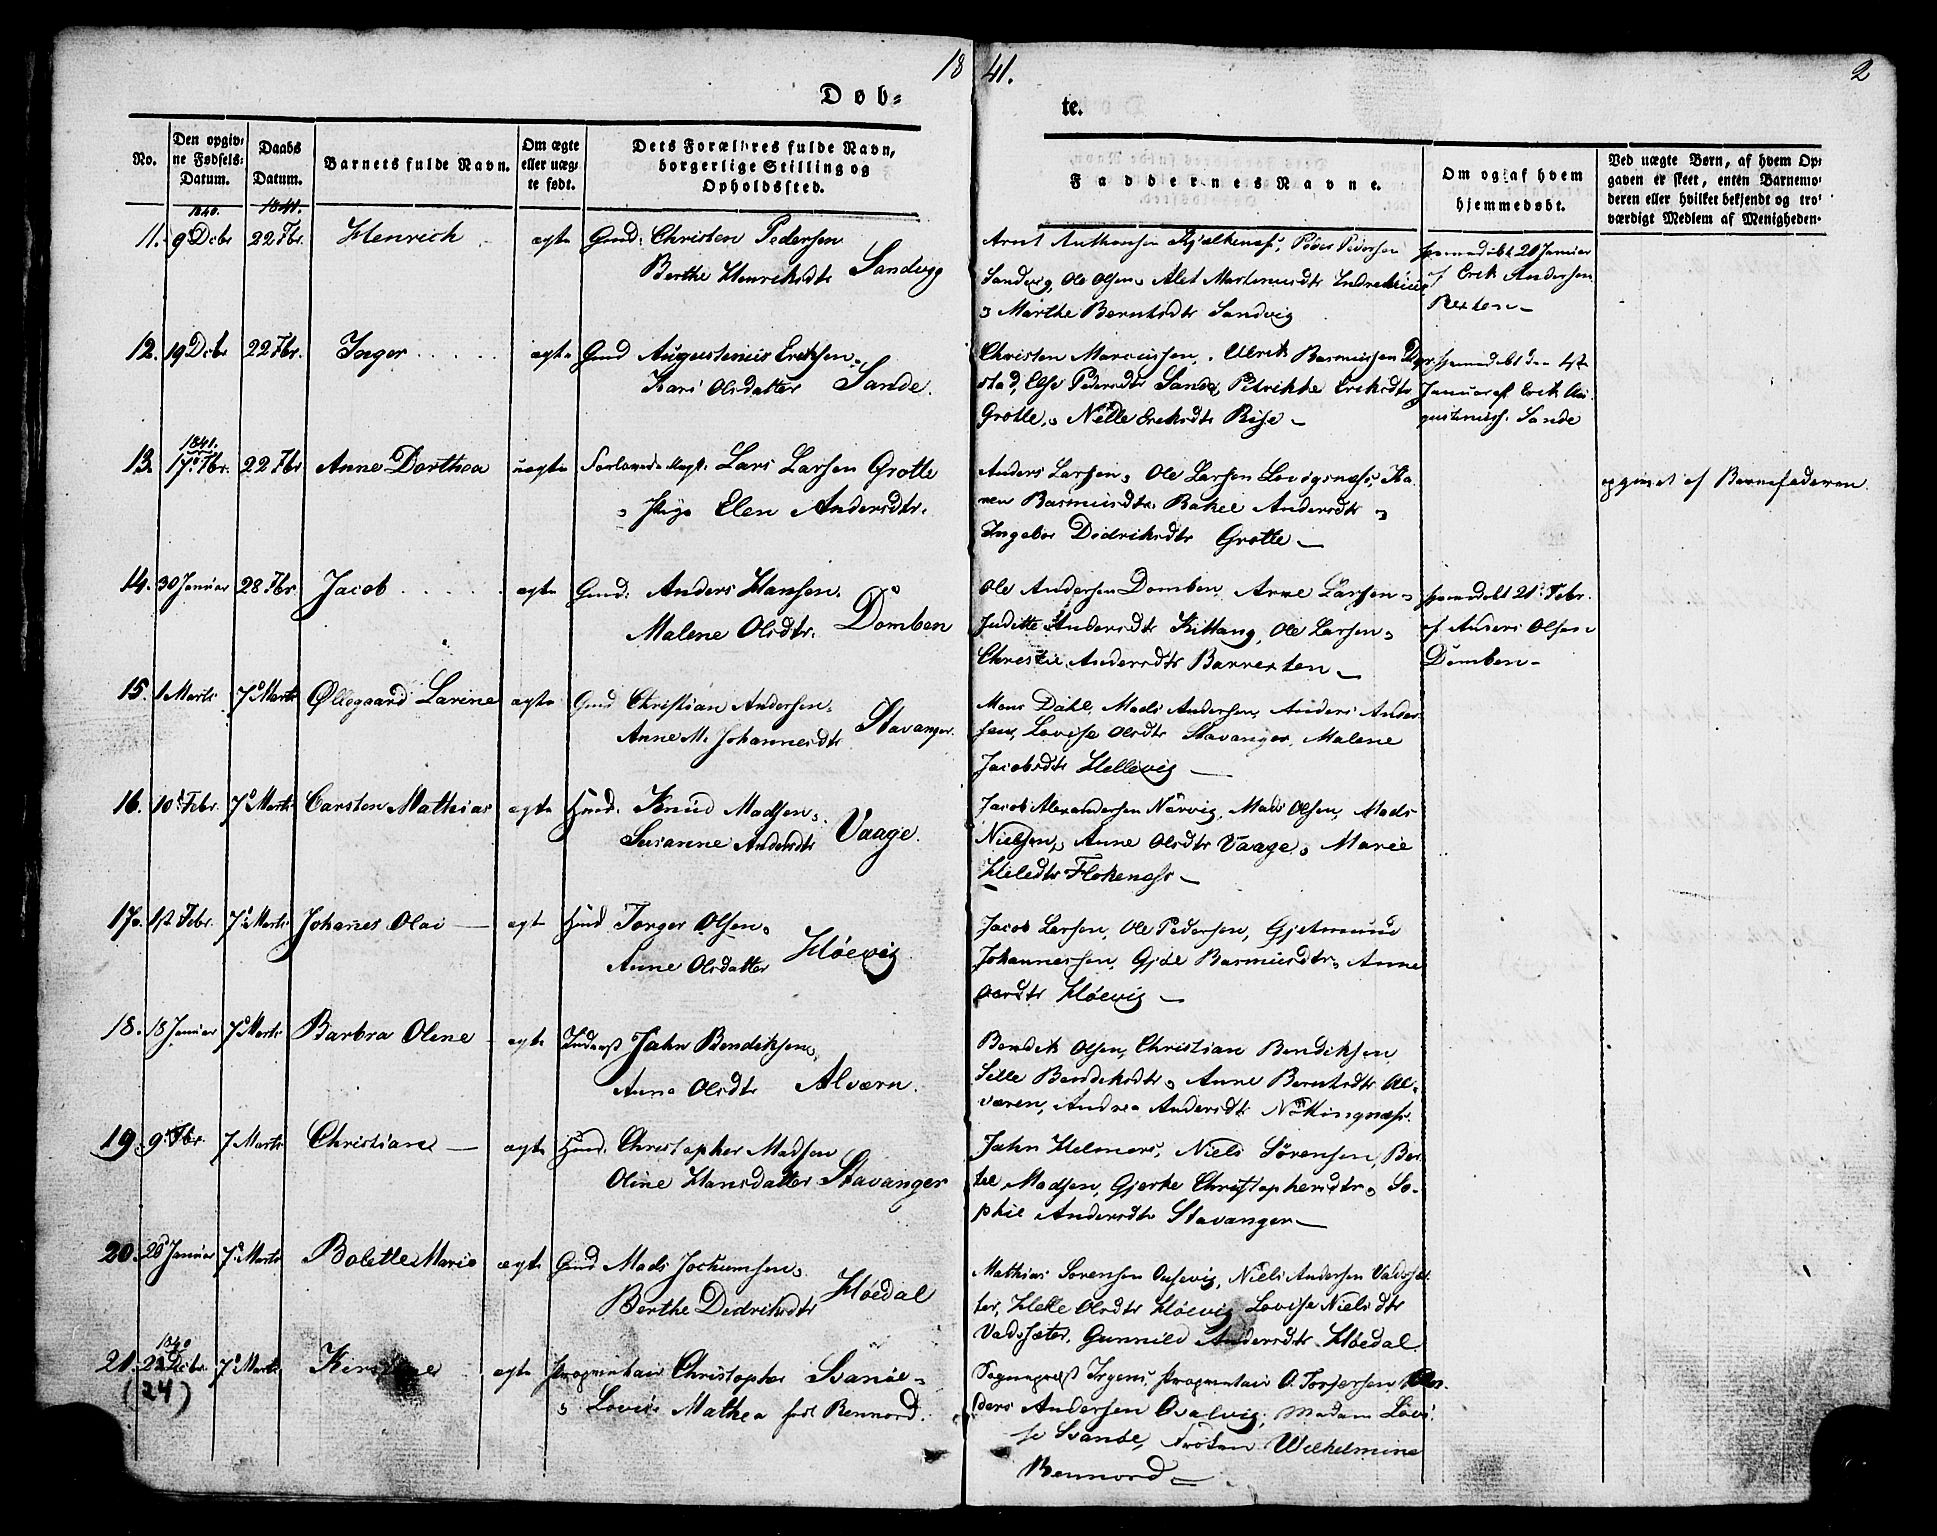 18 41. 2
Døb= te.
No. Den opgiv= ne Fødsels= Datum. Daabs Datum. Barnets fulde Navn. Om ægte eller uæg= te født. Dets Forældres fulde Navn, borgerlige Stilling og Opholdssted. Faddernes Navne. Om og af hvem hjemmedøbt. Ved uægte Børn, af hvem Op= gaven er skeet, enten Barnemo= deren eller hvilket bekjendt og tro= værdigt Medlem af Menigheden.
1840. 1841.
11. 9 Dcbr 22 Fbr. Henrich ægte Gmd: Christen Pedersen
Berthe Henriksdtr Sandvig
Arnt Anthonsen Peder Pedersen
Sandvig, Ole Olsen, Alet Martinusdtr
Marthe Berntsdtr Sandvig
20 Januar
af Erik Andersen
Rexten
12. 19 Dcbr 22 Fbr. Inger ægte Gmd Augustinus Eriksen
Kari Olsdatter Sande.
Christen Marcussen, Ulrik Rasmussen
stad, Else Pedersdtr Sande, Petrikke Eriksdtr
Grotle, Nille Eriksdtr Rise
Januar af Erik Au=
gustinuss. Sande
1841.
13. 17 Fbr. 22 Fbr Anne Dorthea uægte Lars Larsen Grotle
Pige Elen Andersdtr.
Anders Larsen, Ole Larsen Ka
ren Rasmusdtr. Rakel Andersdtr
Ingebor Didriksdtr Grotle
opgivet af Barnefaderen.
14. 30 Januar 28 Fbr. Jacob ægte Gmd: Anders Hansen
Malene Olsdtr. Domben
Ole Andersen Domben, Arne Larsen
Juditte Andersdtr Kittang, Ole Larsen
Christie Andersdtr Barrexten
21 Febr.
af Anders Olsen
Domben
15. 1 Marts 7 Marts Øllegaard Larine ægte Gmd Christian Andersen
Anne M. Johannesdtr Stavanger.
Mons Dahl, Mads Andersen, Anders Ander
sen, Lovise Olsdtr Stavanger, Malene
Jacobsdtr Hellevig
16. 10 Febr. 7 Marts Carsten Mathias ægte Hmd. Knud Madsen
Susanne Andersdtr Vaage.
Jacob Alexandersen Nærvig, Mads Olsen, Mads
Nielsen, Anne Olsdtr Vaage, Marie
Flokenæss
17. 12 Febr. 7 Marts Johanes Olai ægte Hmd Torger Olsen
Anne Olsdatter Høevig
Jacob Larsen, Ole Pedersen, Gjetmund
Johannessen, Gjøe Rasmusdtr, Anne
Høevig
18. 18 Januar 7 Marts Barbra Oline ægte Inderst Jahn Bendiksen
Anne Olsdtr Alværn.
Bendik Olsen, Christian Bendiksen
Sille Bendiksdtr, Anne Berntsdtr Al=
væren, Andrea Andersdtr
19. 9 Fbr. 7 Marts Christiane ægte Hmd. Christopher Madsen
Oline Hansdatter Stavanger
Jahn Helmers, Niels Sørensen, Ber
tel Madsen, Gjerke Christophersdtr, So=
phie Andersdtr Stavanger
20. 26 Januar 7 Marts Bolette Marie ægte Gmd Mads Jochumsen
Berthe Didriksdtr Høedal
Mathias Sørensen Niels Andersen Vadsæ
ter, Helle Olsdtr Høevig Lovise Nielsdtr
Vadsæter, Gunnild Andersdtr Høedal
1840
21. 22 Dcbr. 7 Marts ægte Proprietair Christopher Svanøe
Lovise Mathea født Rennord.
(24)
Sogneprest Irgens, Proprietair O. Torgersen An
ders Andersen Madam Lovi
se Svanøe, Frøken Wilhelmine
Rennord